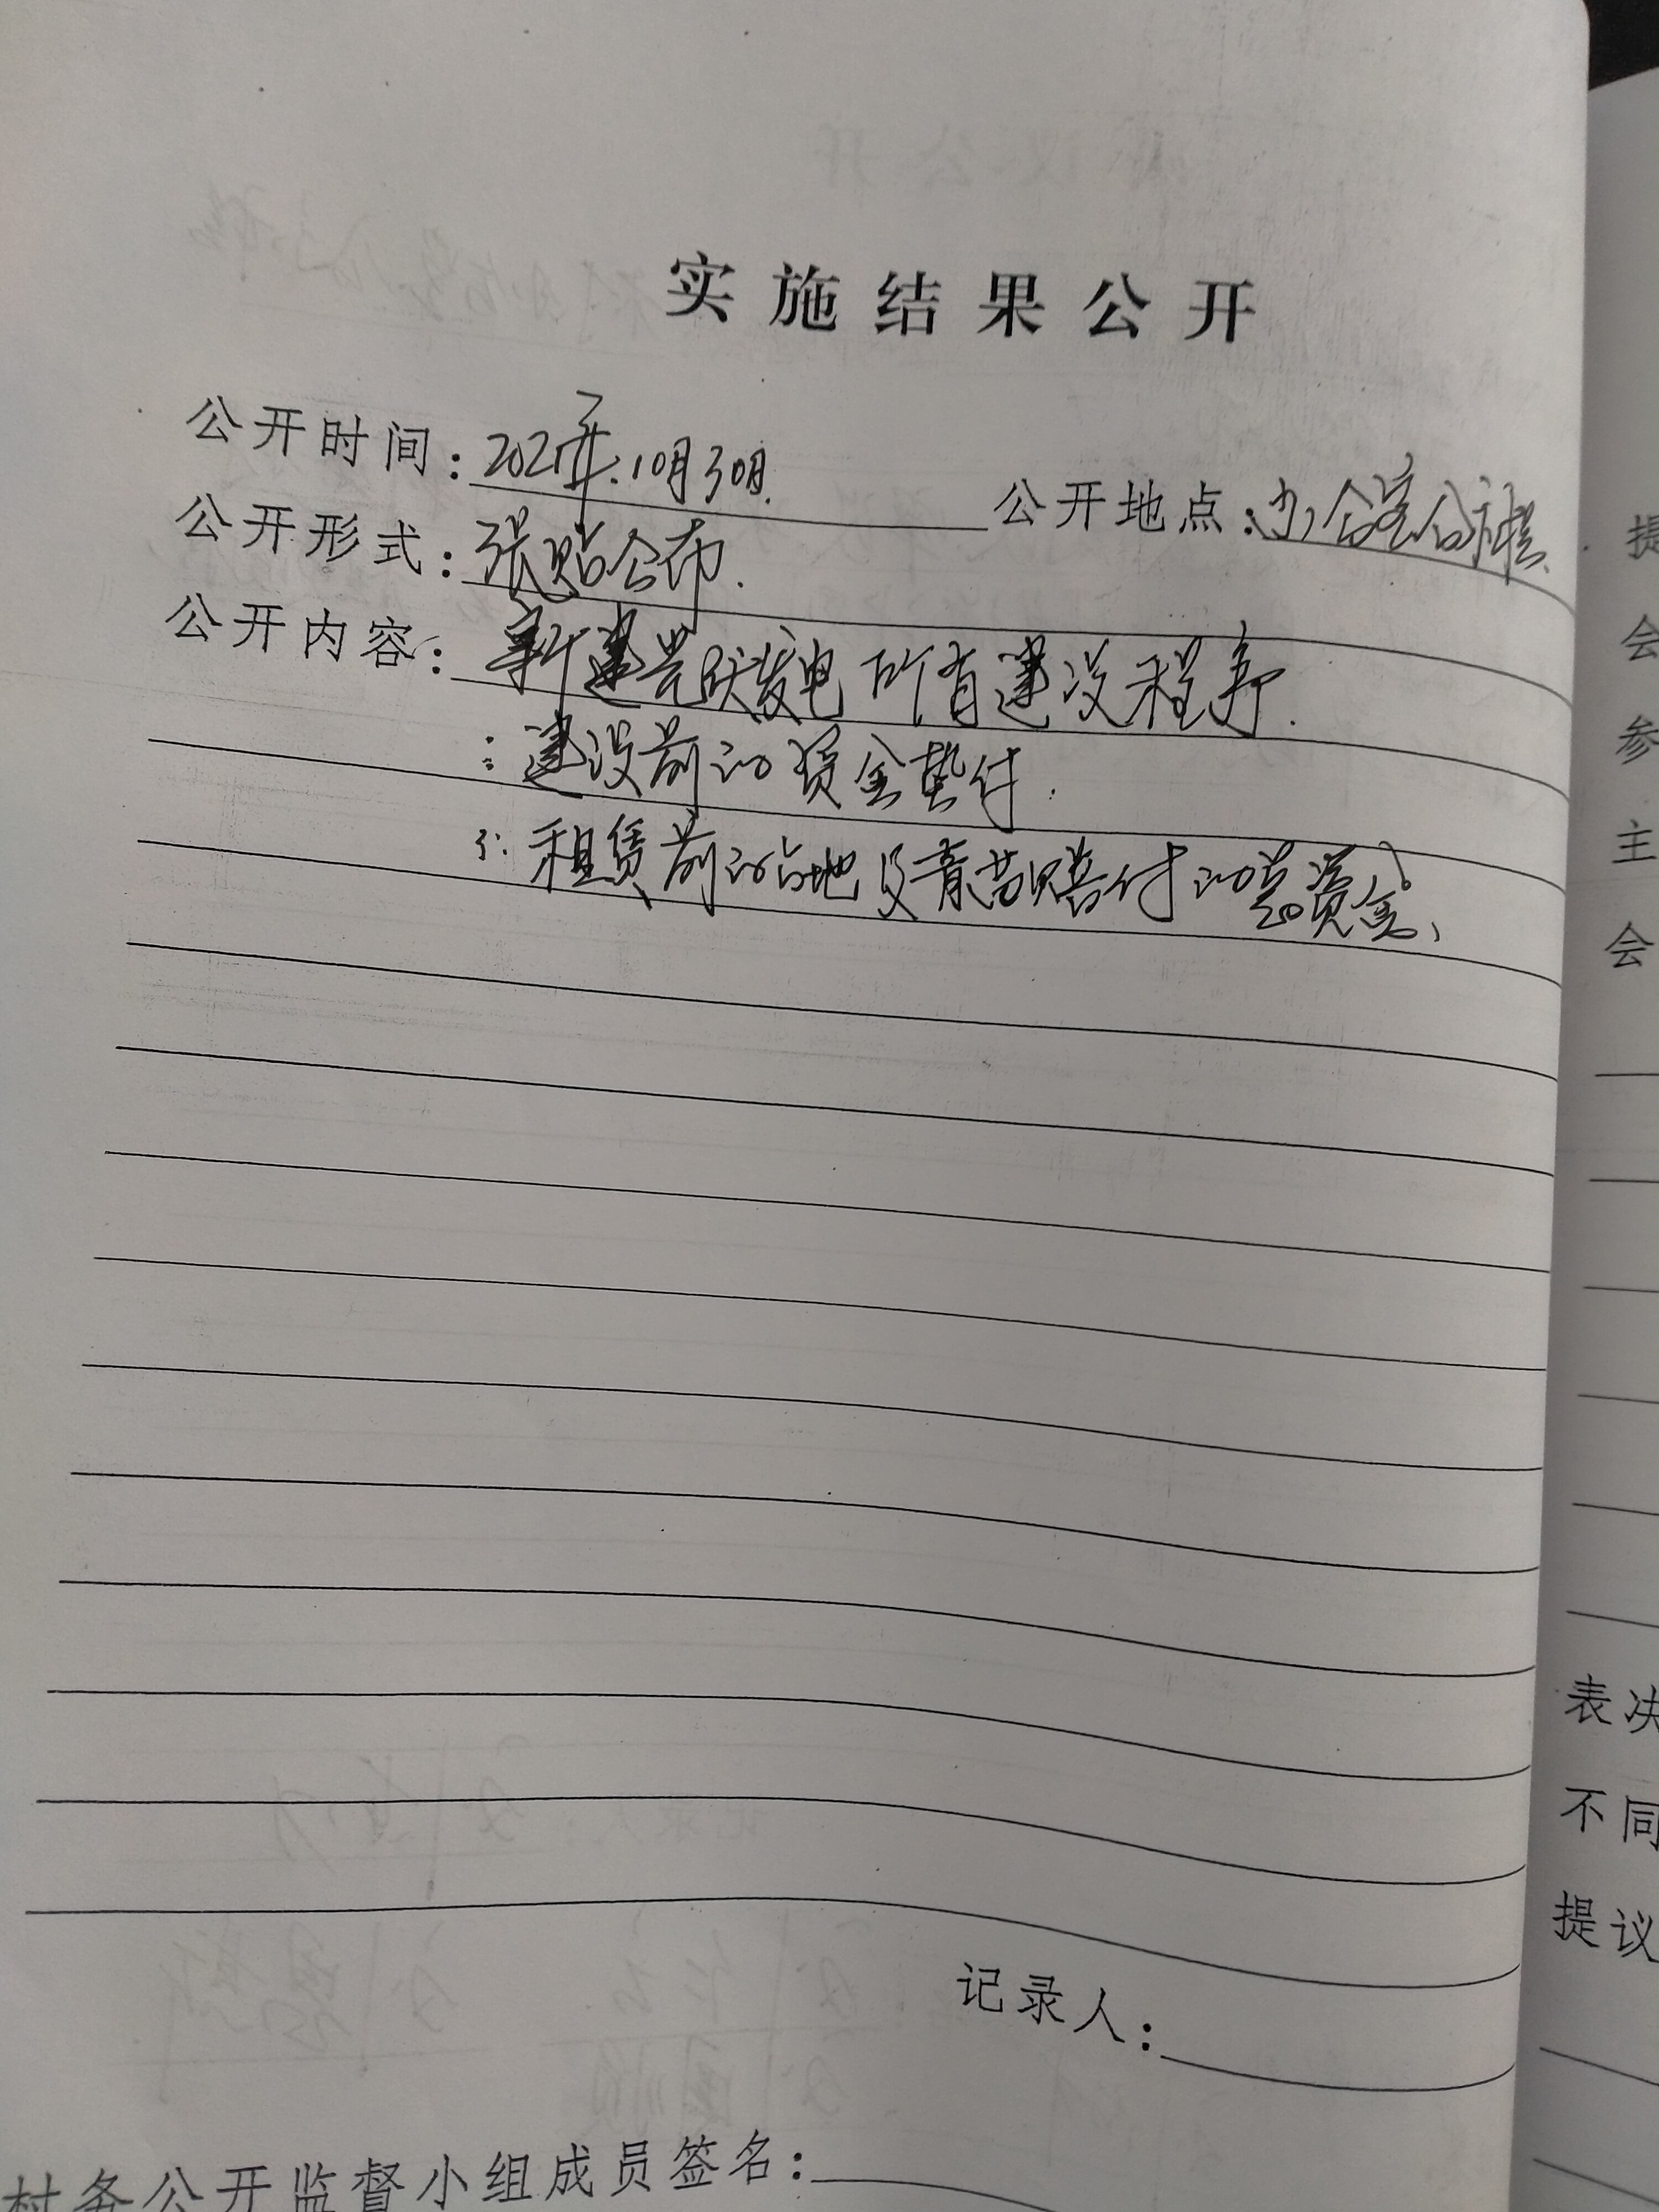 实施结果公开
公开时间：202 年.10月30日. 公开地点：办公室公示栏.
公开形式：张贴公布.
公开内容：新建光伏发电所有建设程序.
：建设前的资金垫付.
3：租赁前的占地及青苗赔付的总资金、
记录人：
村务公开监督小组成员签名：
提
会
参
主
会
表决
不同
提议